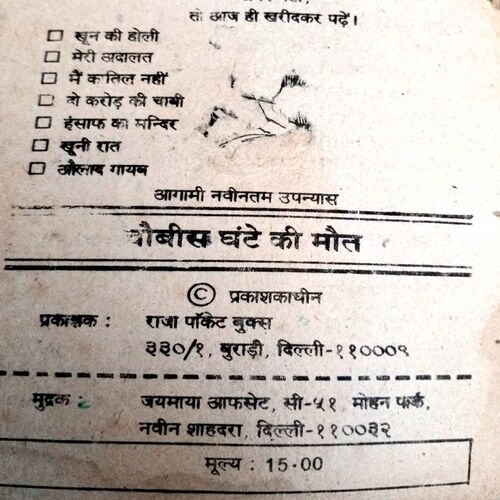 तो आज ही खरीदकर पढ़ें।
खून की होली
मेरी अदालत
मैं कातिल नहीं
दो करोड़ की चाबी
इंसाफ का मन्दिर
खूनी रात
औलाद गायब
आगामी नवीनतम उपन्यास
चौबीस घंटे की मौत
© प्रकाशकाधीन
प्रकाशक : राजा पॉकेट बुक्स
३३०/१, बुराड़ी, दिल्ली-११०००९
मुद्रक : जयमाया आफसेट, सी-५१ मोहन पार्क,
नवीन शाहदरा, दिल्ली-११००३२
मूल्य : 15-00